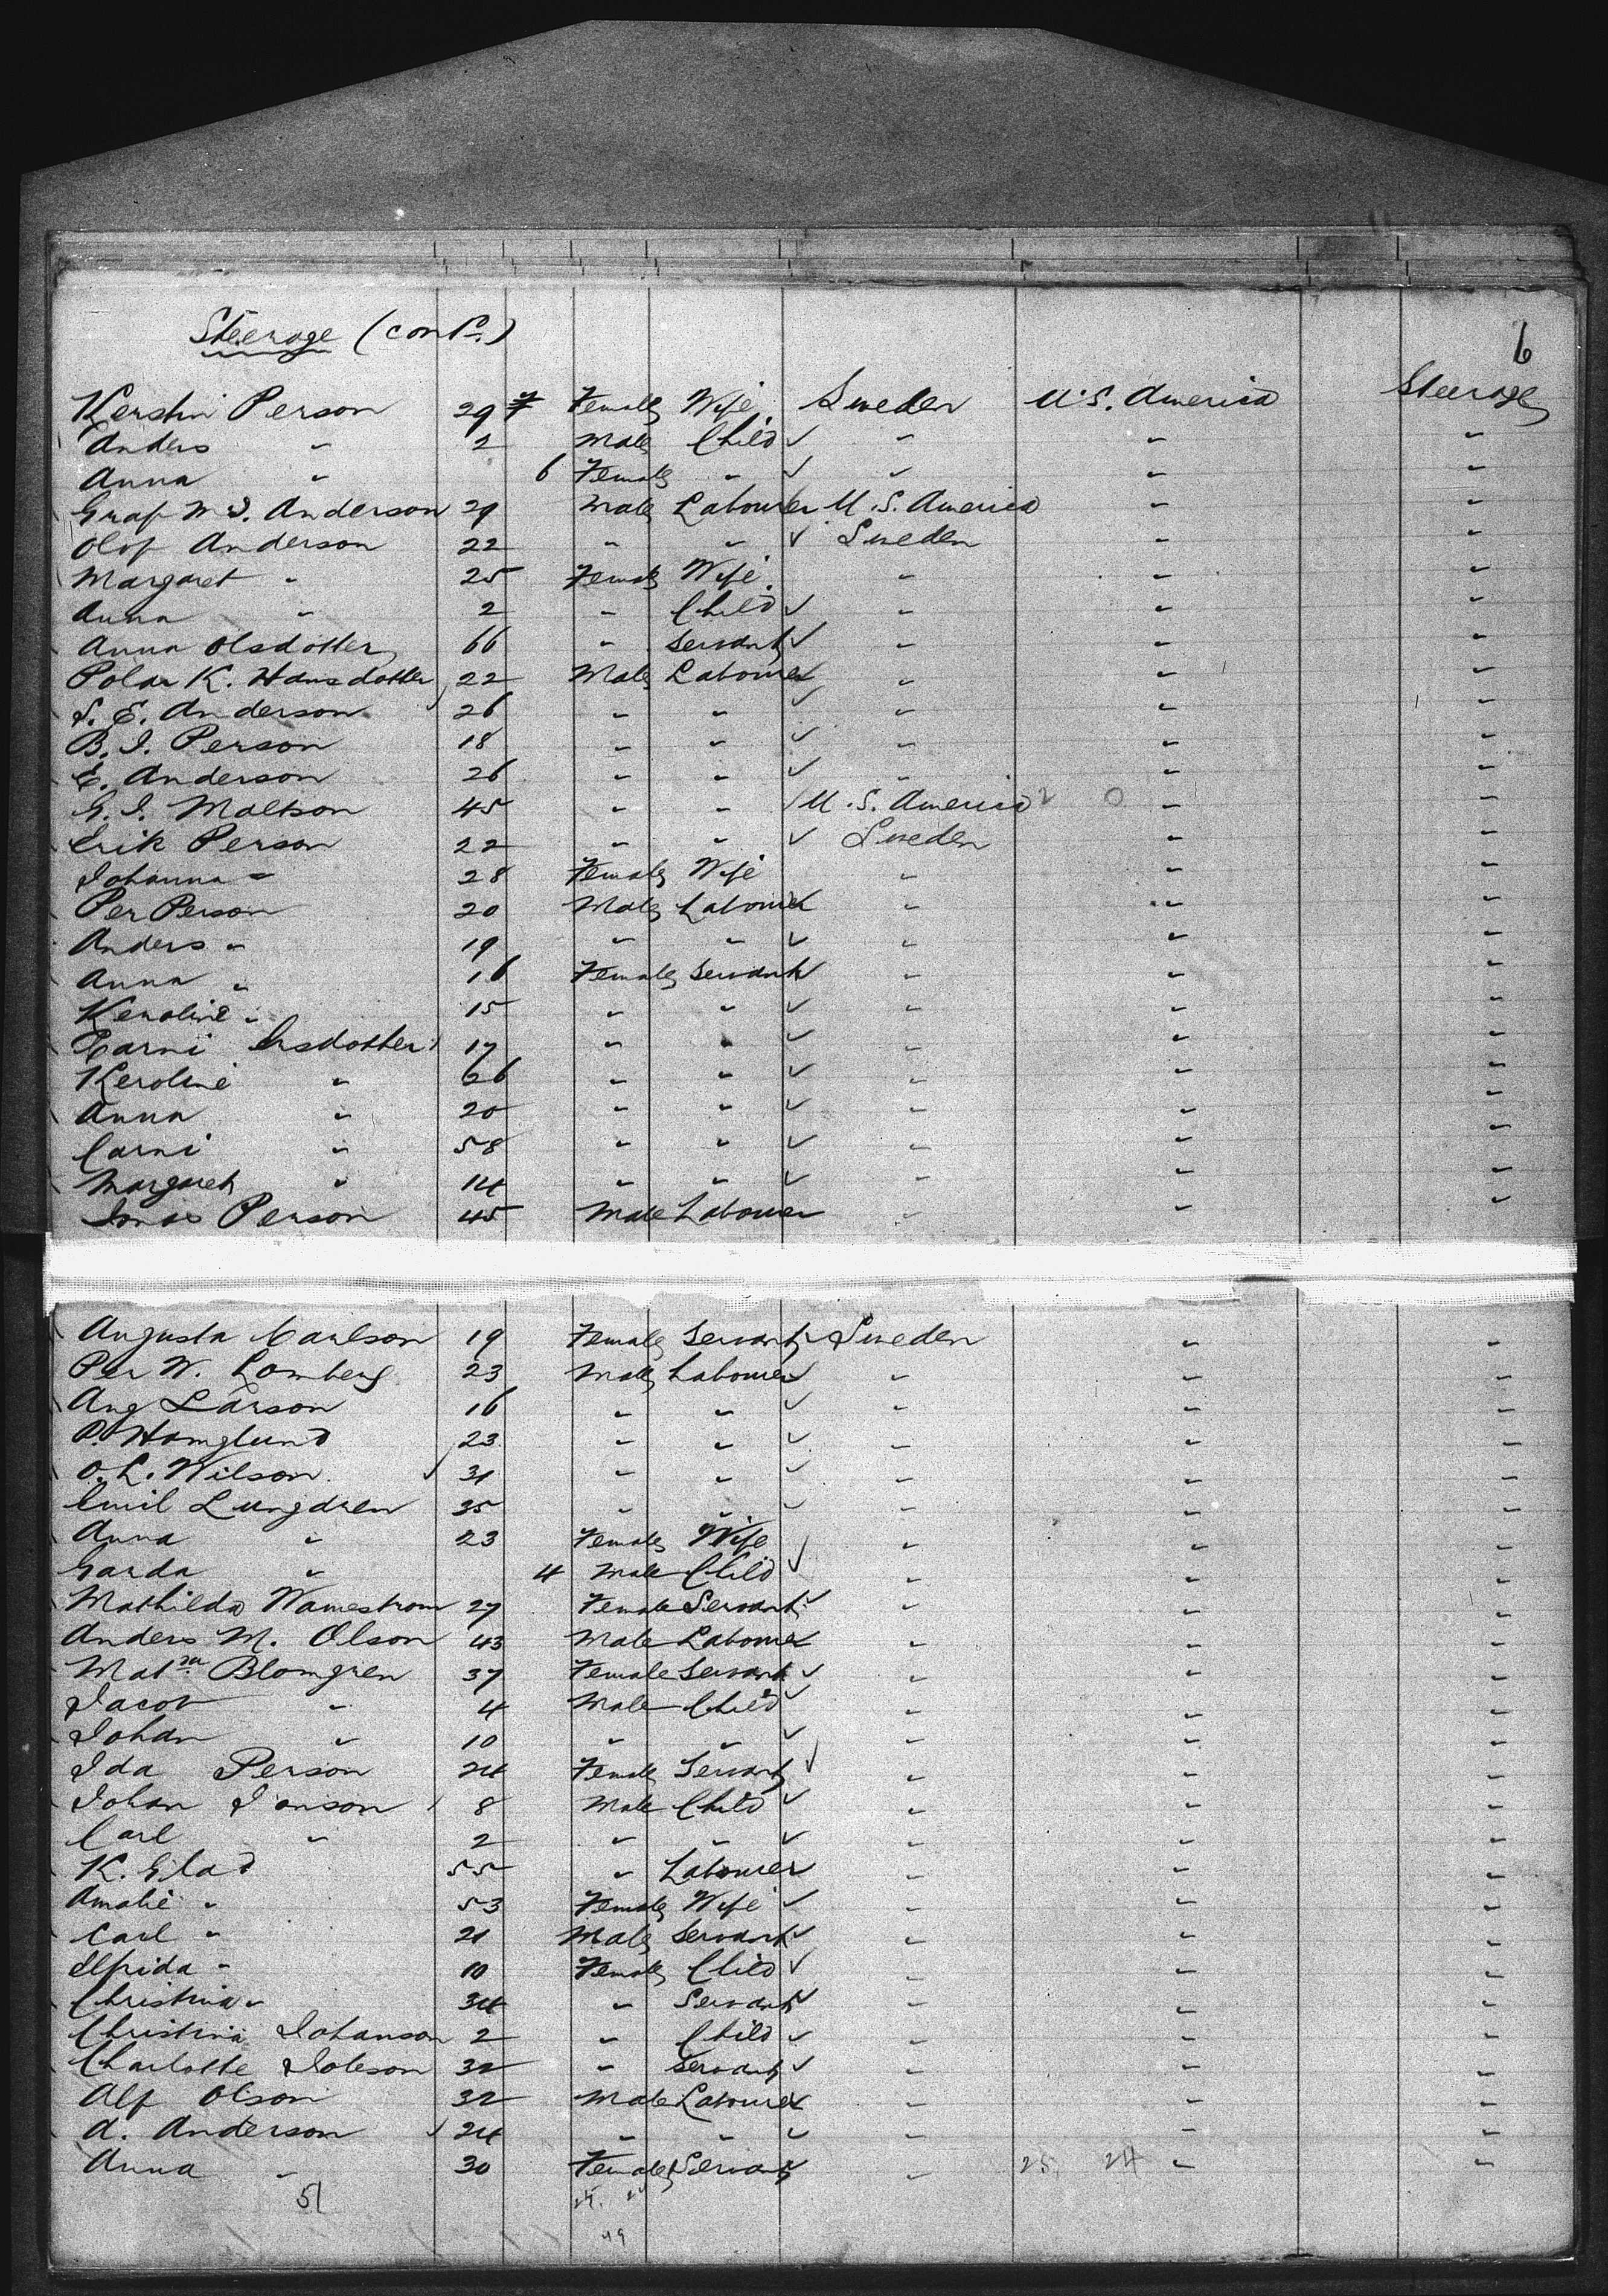 Steerage (cont.)
6
Kershni Person 29 Female Wife Sweden U.S. America Steerage
Anders " 2 Male Child " " "
Anna " 6 Female " " " "
Graf M S. Anderson 29 Male Labourer U.S. America " "
Olof Anderson 22 " " Sweden " "
Margaret " 25 Female Wife " " "
Anna " 2 " Child " " "
Anna Olsdotter 66 " Servant " " "
Polar K. Hansdotter 22 Male Labourer " " "
S. E. Anderson 26 " " " " "
B. I. Person 18 " " " " "
E. Anderson 26 " " " " "
G. I. Maltson 45 " " U.S. America 2 0 " "
Erik Person 22 " " Sweden " "
Johanna " 28 Female Wife " " "
Per Person 20 Male Labourer " " "
Anders " 19 " " " " "
Anna " 16 Female Servant " " "
Keroline " 15 " " " " "
Carni Ersdotter 17 " " " " "
Keroline " 26 " " " " "
Anna " 20 " " " " "
Carni " 58 " " " " "
Margaret " 14 " " " " "
Jonas Person 45 Male Labourer " " "
Augusta Carlson 19 Female Servant Sweden " "
Per W. Lomberg 23 Male Labourer " " "
Aug Larson 16 " " " " "
P. Homglund 23 " " " " "
O. L. Wilson 31 " " " " "
Emil Lungdren 35 " " " " "
Anna " 23 Female Wife " " "
Garda " 4 Male Child " " "
Mathilda Wamestrom 27 Female Servant " " "
Anders M. Olson 43 Male Labourer " " "
Matda Blomgren 37 Female Servant " " "
Jacob " 4 Male Child " " "
Johan " 10 " " " " "
Ida Person 24 Female Servant " " "
Johan Janson 8 Male Child " " "
Carl " 2 " " " " "
K. Glad 55 " Labourer " " "
Amalie " 53 Female Wife " " "
Carl " 21 Male Servant " " "
Elfrida " 10 Female Child " " "
Christina " 34 " Servant " " "
Christina Johanson 2 " Child " " "
Charlotte Joleson 32 " Servant " " "
Alf Olson 32 Male Labourer " " "
A. Anderson 24 " " " " "
Anna " 30 Female Servant " 25 24 " "
51
49